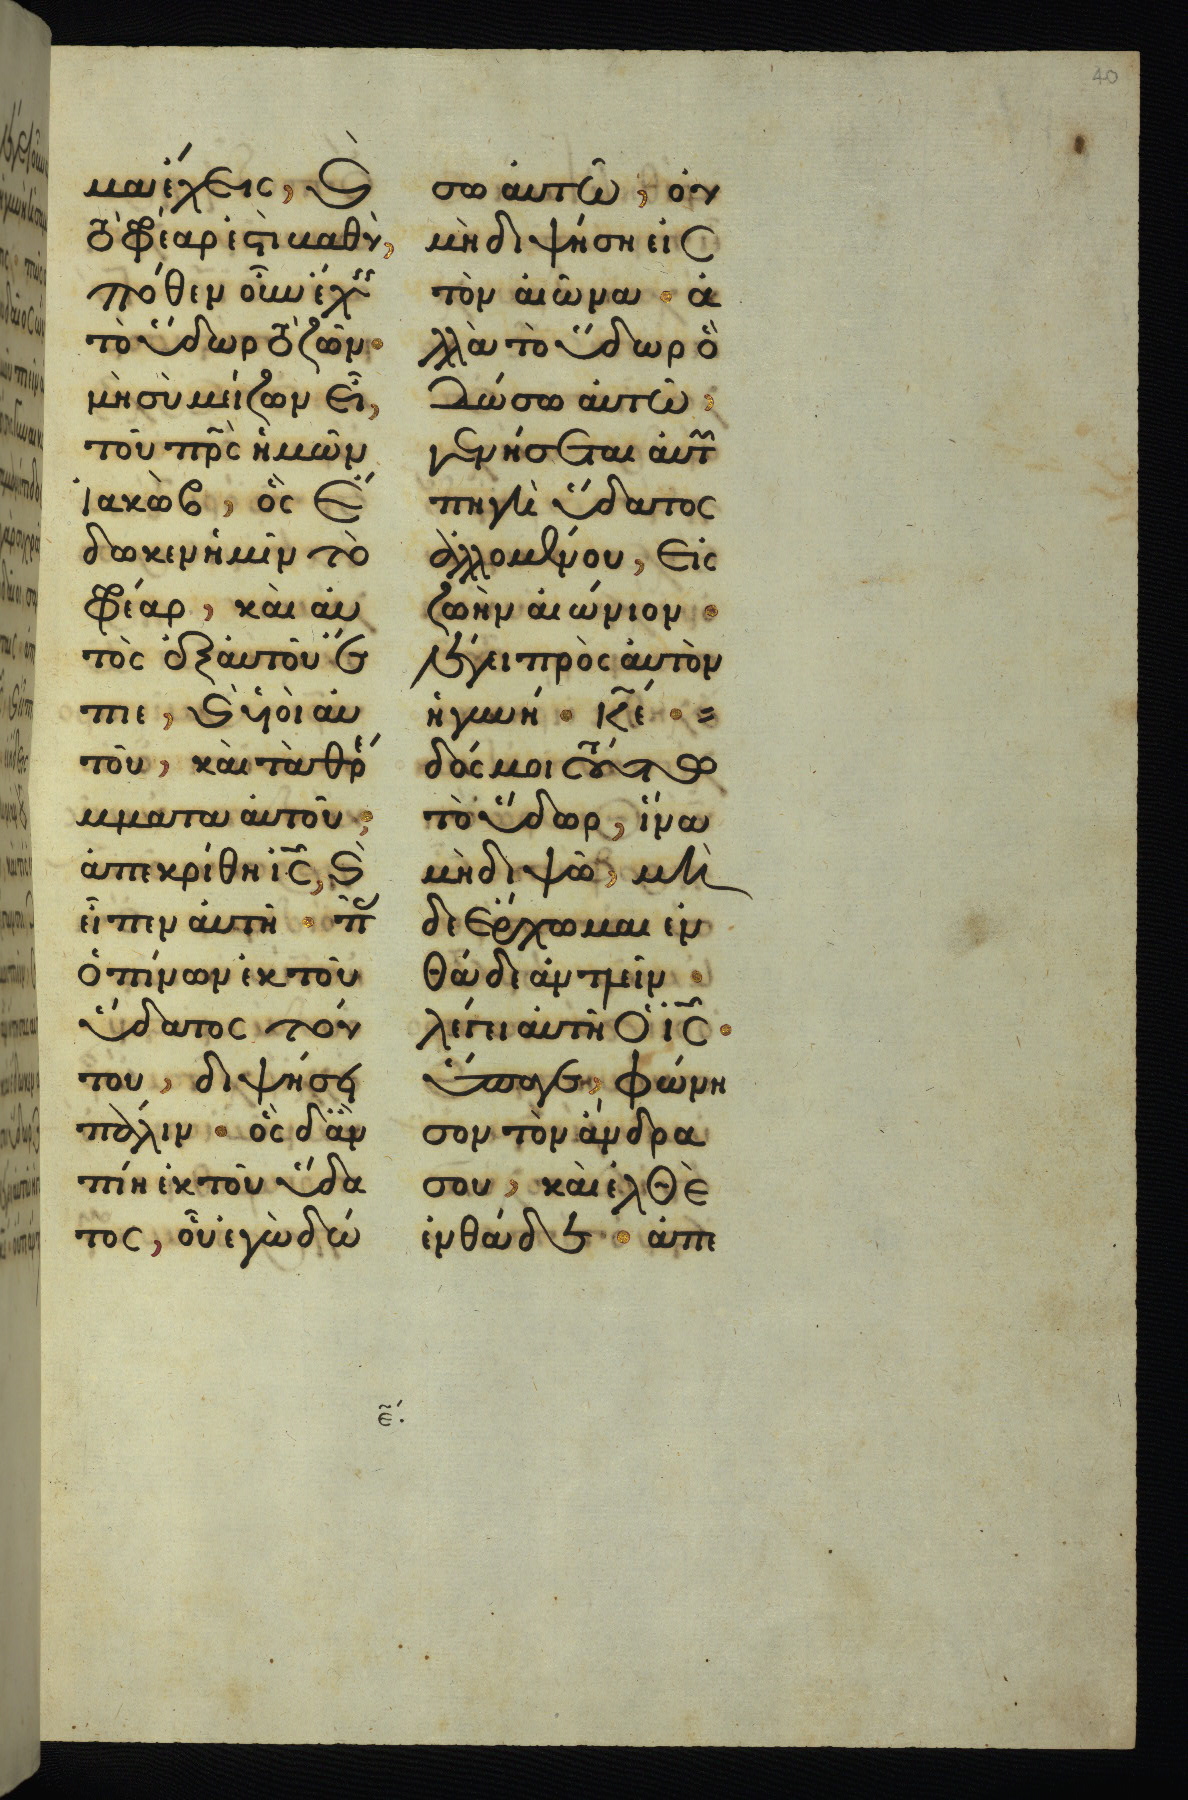 μα ἔχεις, καὶ
τὸ φρέαρ ἐστὶ βαθύ,
πόθεν οὖν ἔχεις
τὸ ὕδωρ τὸ ζῶν·
μὴ σὺ μείζων εἶ,
τοῦ πρ̅ς ἡμῶν
Ἰακὼβ, ὃς ἔ
δωκεν ἡμῖν τὸ
φρέαρ, καὶ αὐ
τὸς ἐξ αὐτοῦ ἔ
πιε, καὶ υἱοὶ αὐ
τοῦ, καὶ τὰ θρέ
μματα αὐτοῦ;
ἀπεκρίθη ἰ̅ς, καὶ
εἶπεν αὐτῆ · πᾶς
ὁ πίνων ἐκ τοῦ
ὕδατος τού
του, διψήσει
πάλιν · ὃς δ' ἂν
πίη ἐκ τοῦ ὕδα
τος, οὗ ἐγὼ δώ
σω αὐτῶ, οὐ
μὴ διψήση εἰς
τὸν αἰῶνα · ἀ
λλὰ τὸ ὕδωρ ὃ
δώσω αὐτῶ,
γενήσεται ἐν αὐτῶ
πηγὴ ὕδατος
ἁλλομένου, εἰς
ζωὴν αἰώνιον ·
λέγει πρὸς αὐτὸν
ἡ γυνή · κ̅ε ·
δός μοι τοῦτο
τὸ ὕδωρ, ἵνα
μὴ διψῶ, μη
δὲ ἔρχωμαι ἐν
θάδε ἀντλεῖν ·
λέγει αὐτῆ ὁ ἰ̅ς ·
ὕπαγε, φώνη
σον τὸν ἄνδρα
σου, καὶ ἐλθὲ
ἐνθάδε · ἀπε
ε̅.
40